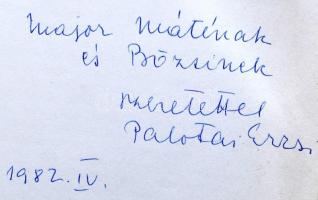 Major Máténak
és Bözsinek
szeretettel
Palotai Erzsi
1982. IV.